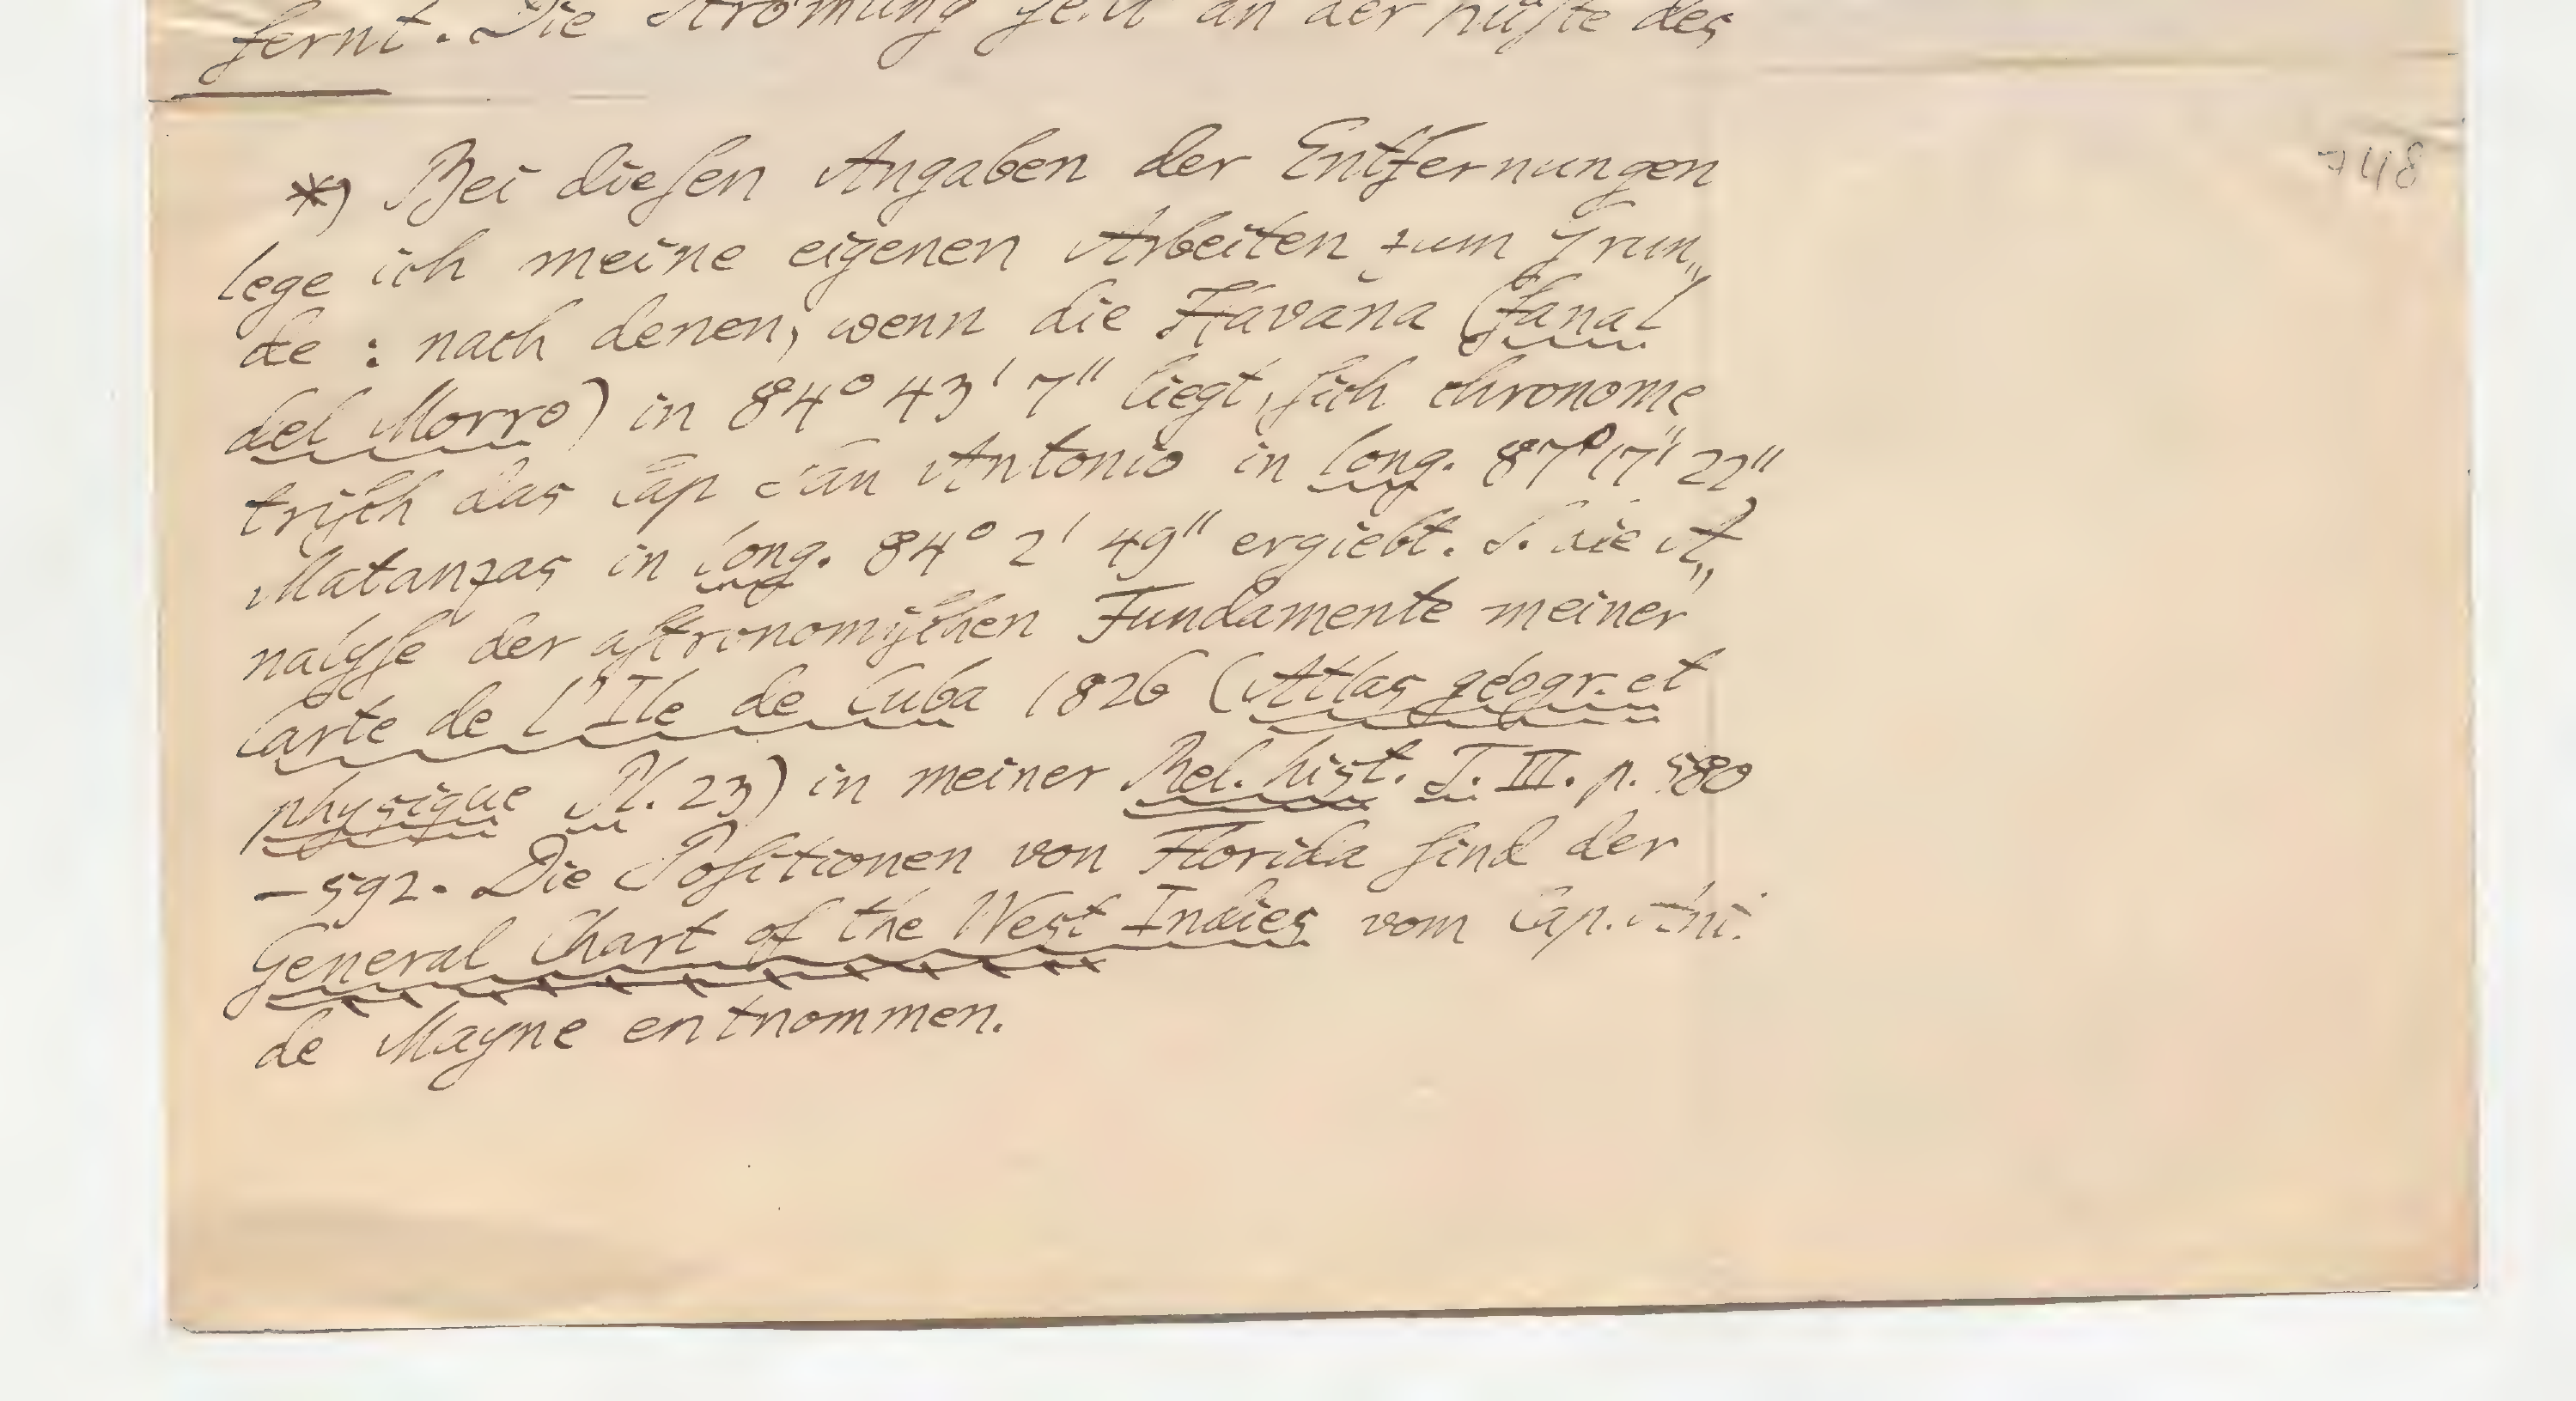 fernt. Die Strömung geht an der Küste des
*) Bei dieſen Angaben der Entfernungen
lege ich meine eigenen Arbeiten zum Grun„
de : nach denen, wenn die Havana (fanal
del Morro) in 84° 43' 7" liegt, ſich chronome„
triſch das Cap San Antonio in long. 87° 17' 22",
Matanzas in long. 84° 2' 49" ergiebt. S. die A„
nalyſe der aſtronomiſchen Fundamente meiner
Carte de l'Ile de Cuba 1826 (Atlas géogr. et
physique Pl. 23) in meiner Rel. hist. T. III. p. 580
—592. Die Poſitionen von Florida ſind der
General Chart of the West Indies vom Cap.
de Mayne entnommen.
748